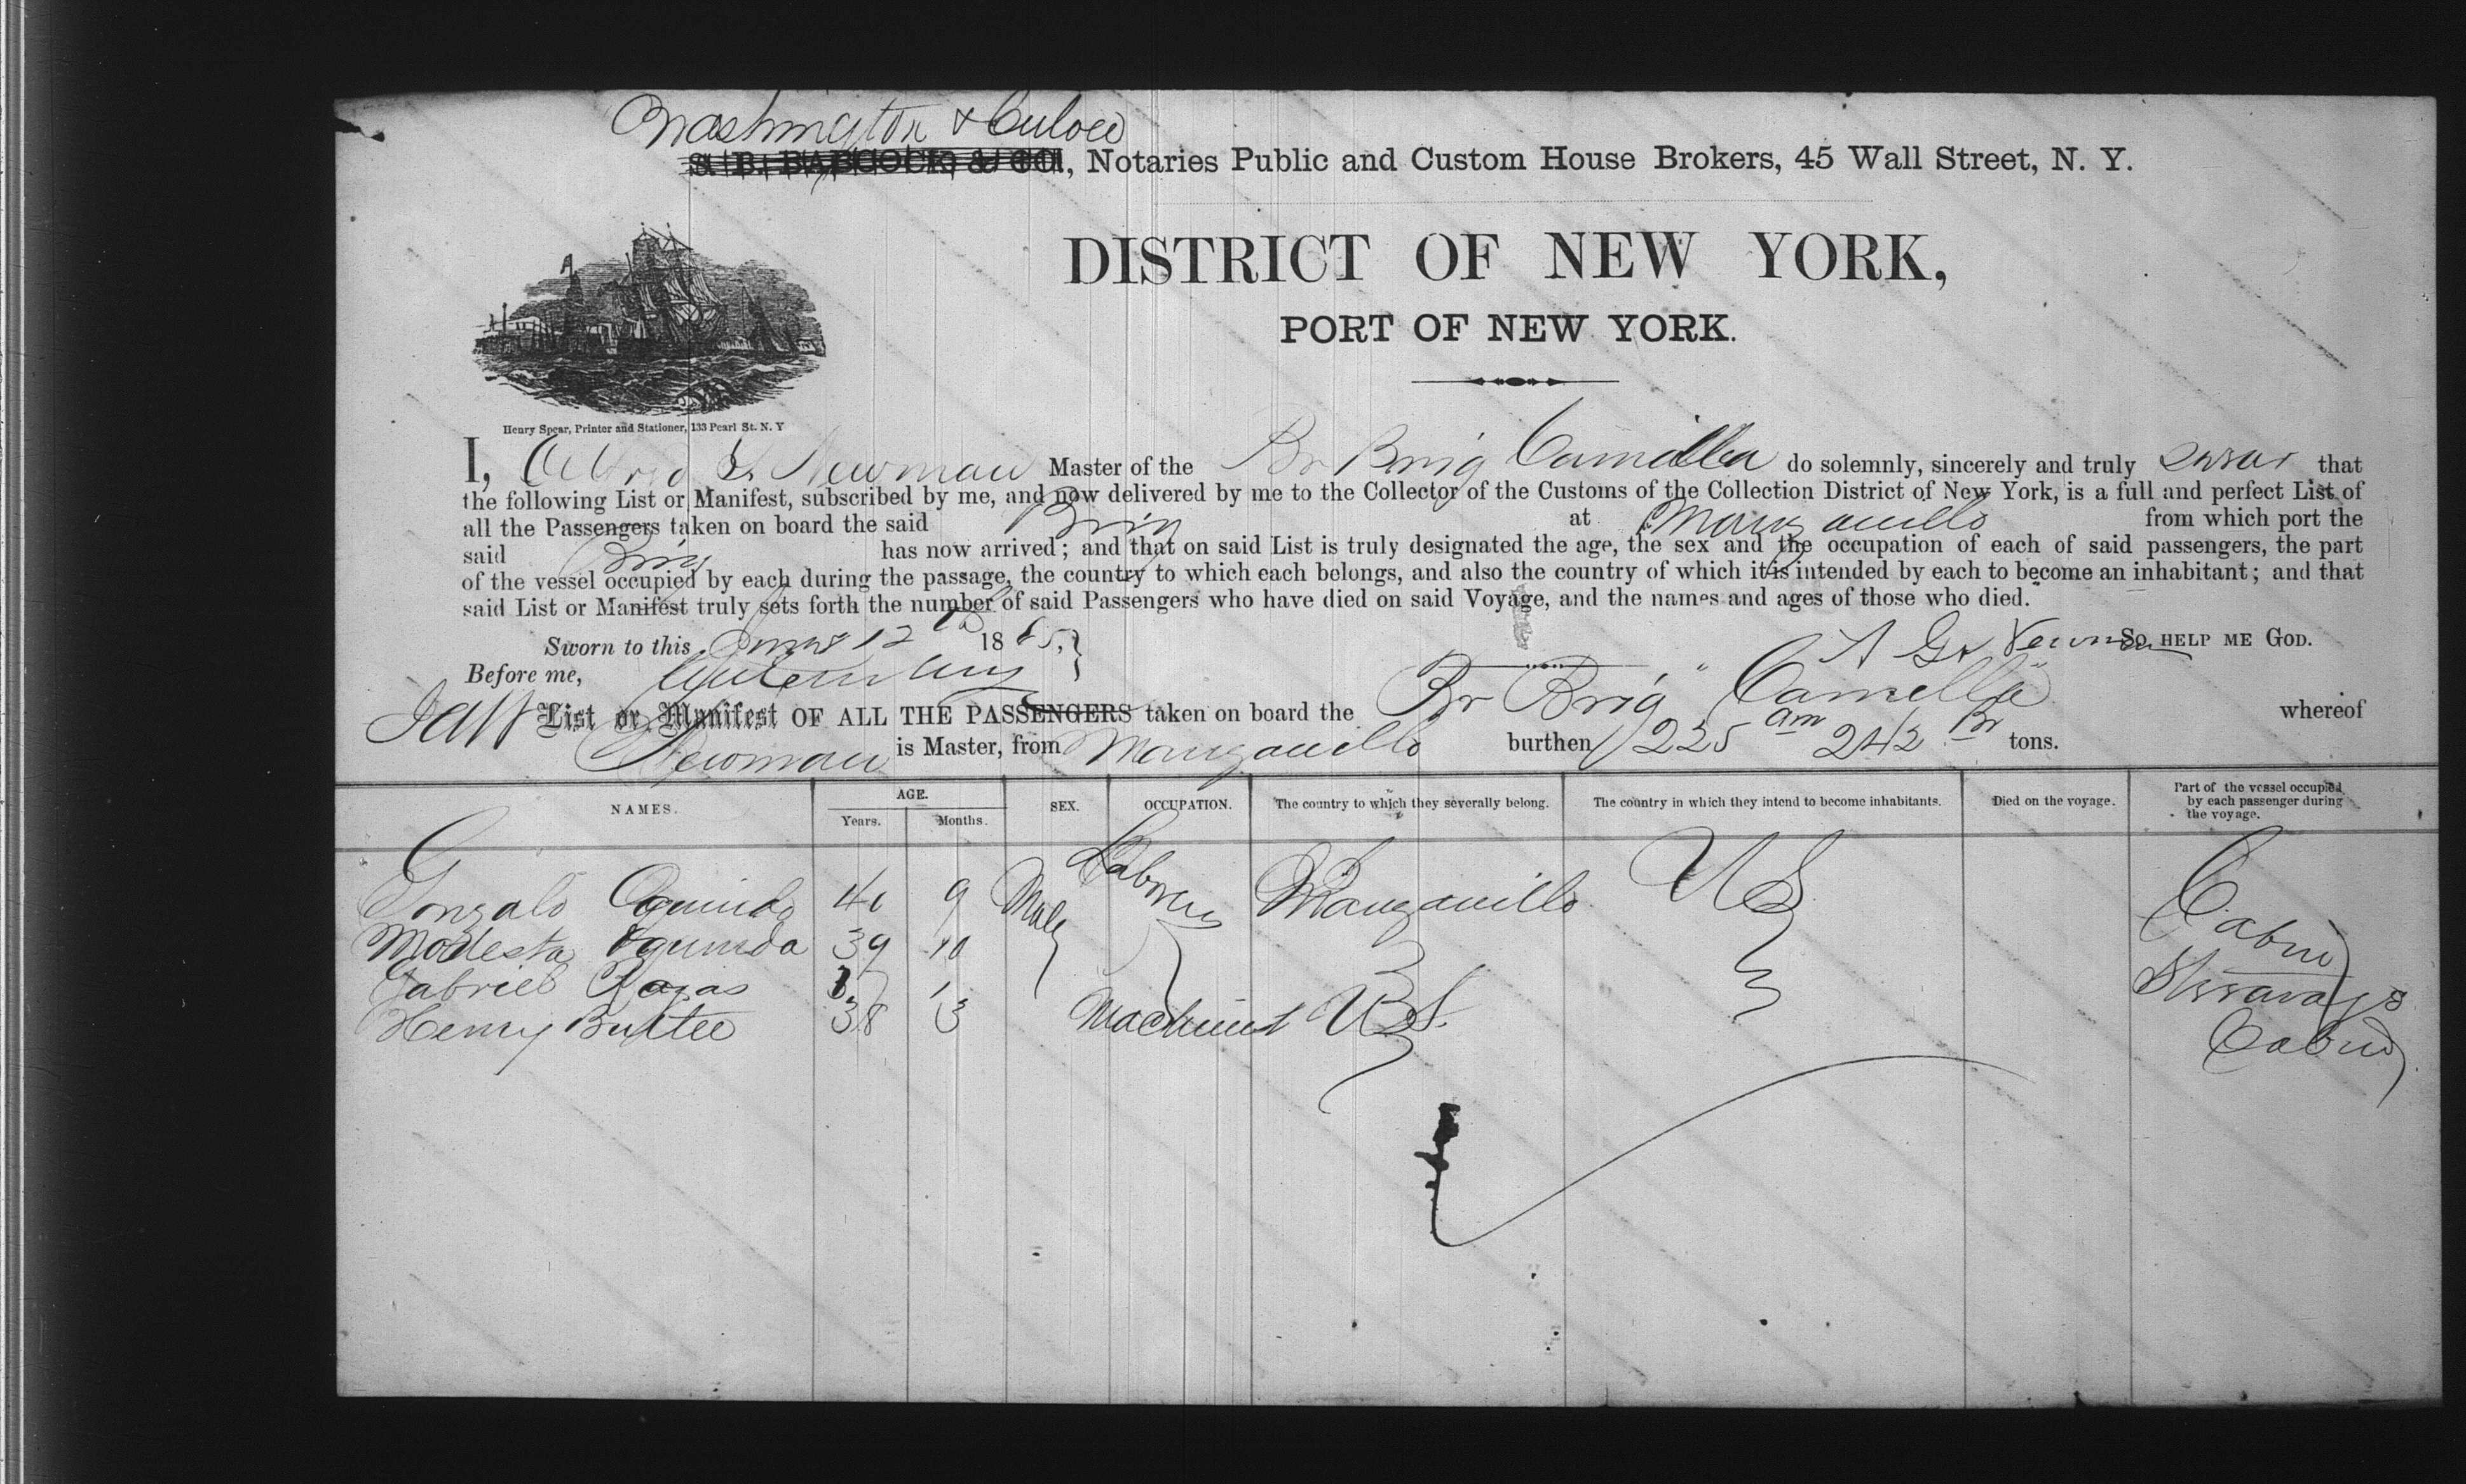 Washington &
S. B. BABCOCK & CO., Notaries Public and Custom House Brokers, 45 Wall Street, N. Y.
DISTRICT OF NEW YORK,
PORT OF NEW YORK.
Henry Spear, Printer and Stationer, 133 Pearl St. N. Y
I, Alfred G. Newman Master of the Br Brig Camilla do solemnly, sincerely and truly swear that
the following List or Manifest, subscribed by me, and now delivered by me to the Collector of the Customs of the Collection District of New York, is a full and perfect List of
all the Passengers taken on board the said Brig at Manzanillo from which port the
said Brig has now arrived; and that on said List is truly designated the age, the sex and the occupation of each of said passengers, the part
of the vessel occupied by each during the passage, the country to which each belongs, and also the country of which it is intended by each to become an inhabitant; and that
said List or Manifest truly sets forth the number of said Passengers who have died on said Voyage, and the names and ages of those who died.
Sworn to this 12th 1865, } A G Newman SO HELP ME GOD.
Before me,
List or Manifest OF ALL THE PASSENGERS taken on board the Br Brig "Camella" whereof
Newman is Master, from Manzanillo burthen 225 am 242 Br tons.
NAMES. AGE. Years. Months. SEX. OCCUPATION. The country to which they severally belong. The country in which they intend to become inhabitants. Died on the voyage. Part of the vessel occupied by each passenger during the voyage.
Gonzalo 41 9 Male Laborers Manzanillo US Cabin
Modesta 39 10
Gabriel Rojas Steerage
Henry 38 3 Machinist US. Cabin